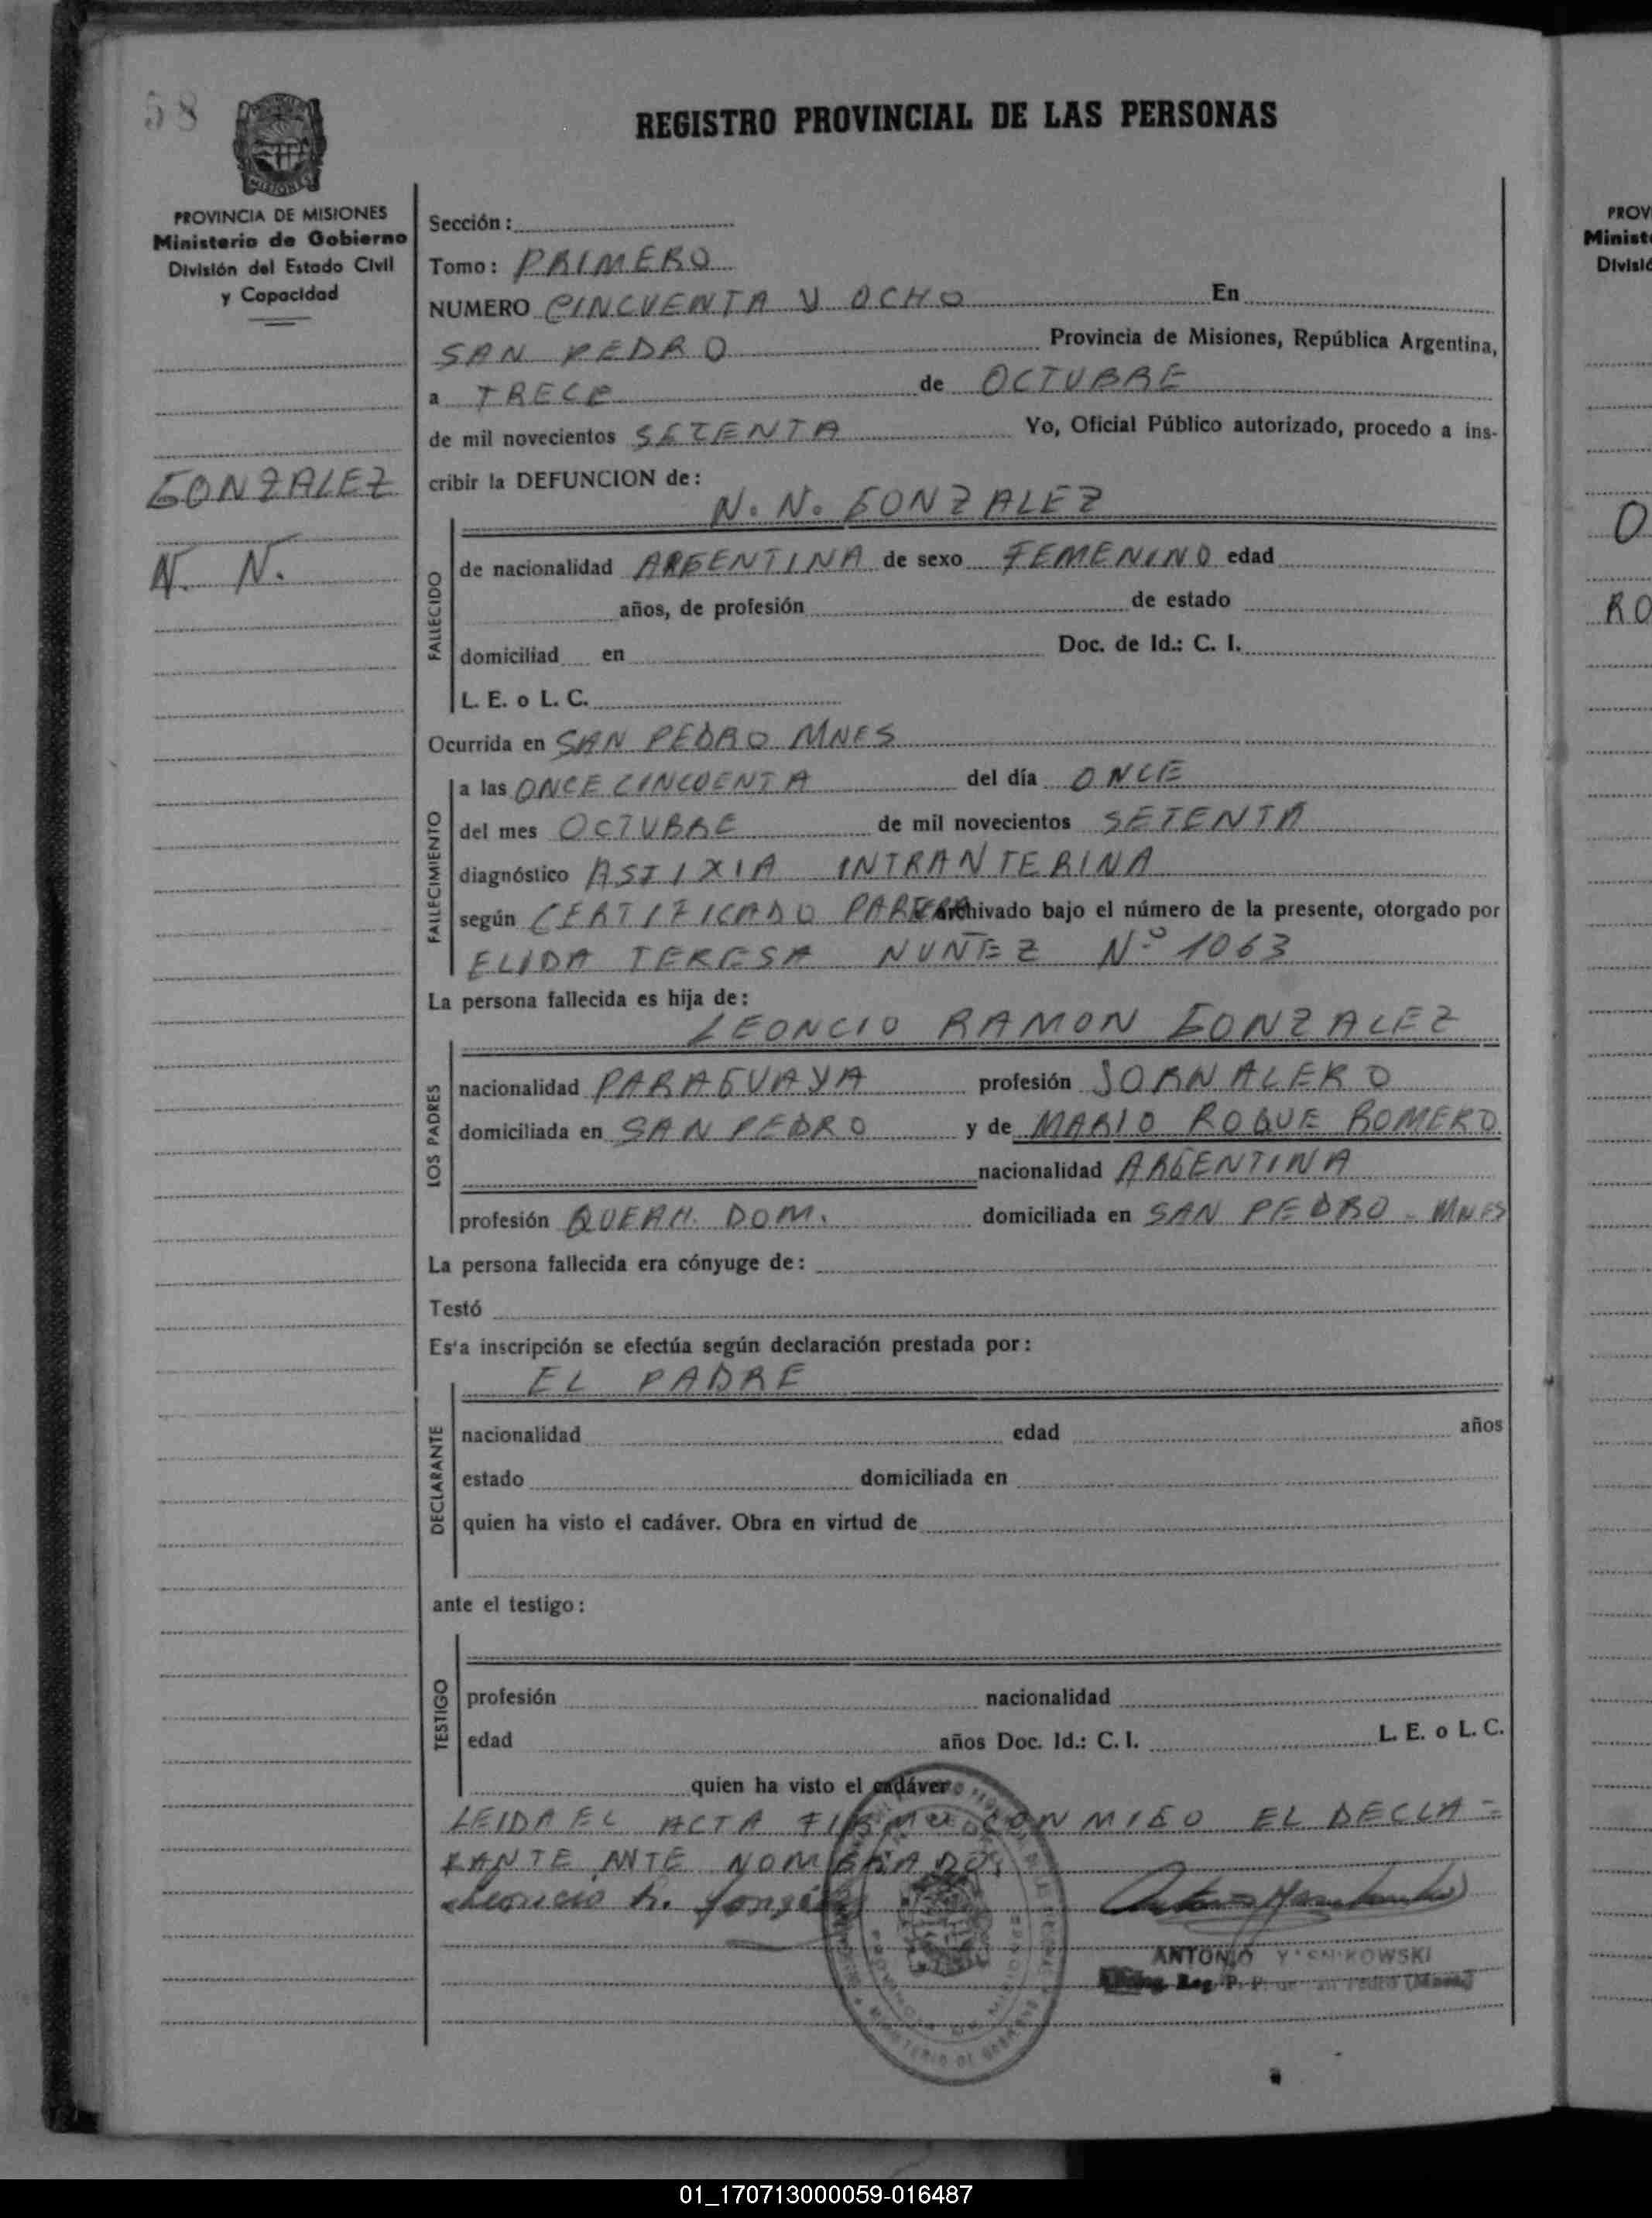 58
REGISTRO PROVINCIAL DE LAS PERSONAS
MISIONES
PROVINCIA DE MISIONES
Ministerio de Gobierno
División del Estado Civil
y Capacidad
Sección:
Tomo: PRIMERO
NUMERO CINCUENTA Y OCHO En
SAN PEDRO Provincia de Misiones, República Argentina,
a TRECE de OCTUBRE
de mil novecientos SETENTA Yo, Oficial Público autorizado, procedo a ins-
cribir la DEFUNCION de:
GONZALEZ
N. N.
N. N. GONZALEZ
FALLECIDO
de nacionalidad ARGENTINA de sexo FEMENINO edad
años, de profesión de estado
domiciliad en Doc. de Id.: C. I.
L. E. o L. C.
Ocurrida en SAN PEDRO MNES
FALLECIMIENTO
a las ONCE CINCUENTA del día ONCE
del mes OCTUBRE de mil novecientos SETENTA
diagnóstico ASFIXIA INTRANTERINA
según CERTIFICADO PARTERA archivado bajo el número de la presente, otorgado por
ELIDA TERESA NUNEZ Nº 1063
La persona fallecida es hija de:
LEONCIO RAMON GONZALEZ
LOS PADRES
nacionalidad PARAGUAYA profesión JORNALERO
domiciliada en SAN PEDRO y de MARIO ROQUE ROMERO
nacionalidad ARGENTINA
profesión QUEAH. DOM. domiciliada en SAN PEDRO - MNES
La persona fallecida era cónyuge de:
Testó
Es'a inscripción se efectúa según declaración prestada por:
EL PADRE
DECLARANTE
nacionalidad edad años
estado domiciliada en
quien ha visto el cadáver. Obra en virtud de
ante el testigo:
TESTIGO
profesión nacionalidad
edad años Doc. Id.: C. I. L. E. o L. C.
quien ha visto el cadáver
LEIDA EL ACTA FIRMO CON MIGO EL DECLA-
RANTE ANTE NOMBRADO
Leoncio R. González
ANTONIO
Reg. P. P. de San Pedro (Mnes)
PROV
Minist
Divisió
O
RO
01_170713000059-016487